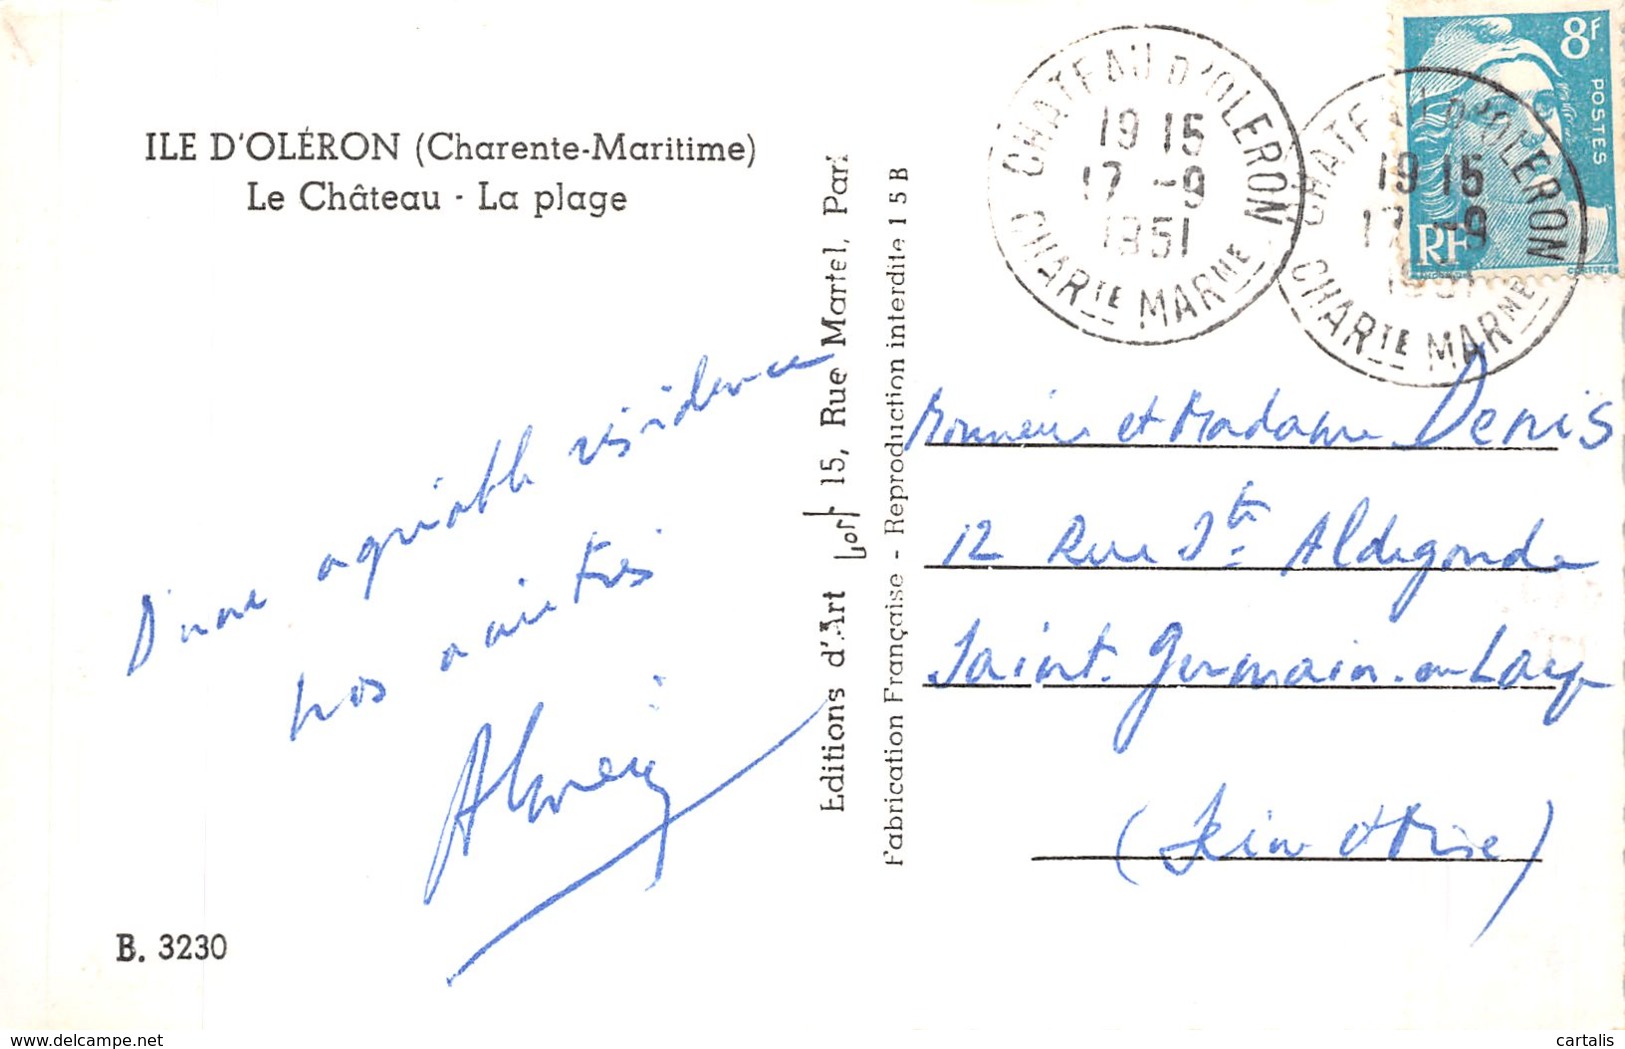 ILE D'OLÉRON (Charente-Maritime)
Le Château - La plage
D'une agréable résidence
nos amitiés
B. 3230
Editions d'Art 15, Rue Martel, Pari
Fabrication Française - Reproduction interdite 15 B
CHATEAU D'OLERON
19 15
17 -9
1951
CHARTE MARNE
CHATEAU D'OLERON
19 15
17 -9
1951
CHARTE MARNE
8F
POSTES
RF
Monsieur et Madame Denis
12 Rue Ste Aldegonde
Saint-Germain-en-Laye
(Seine et Oise)
www.delcampe.net
cartalis